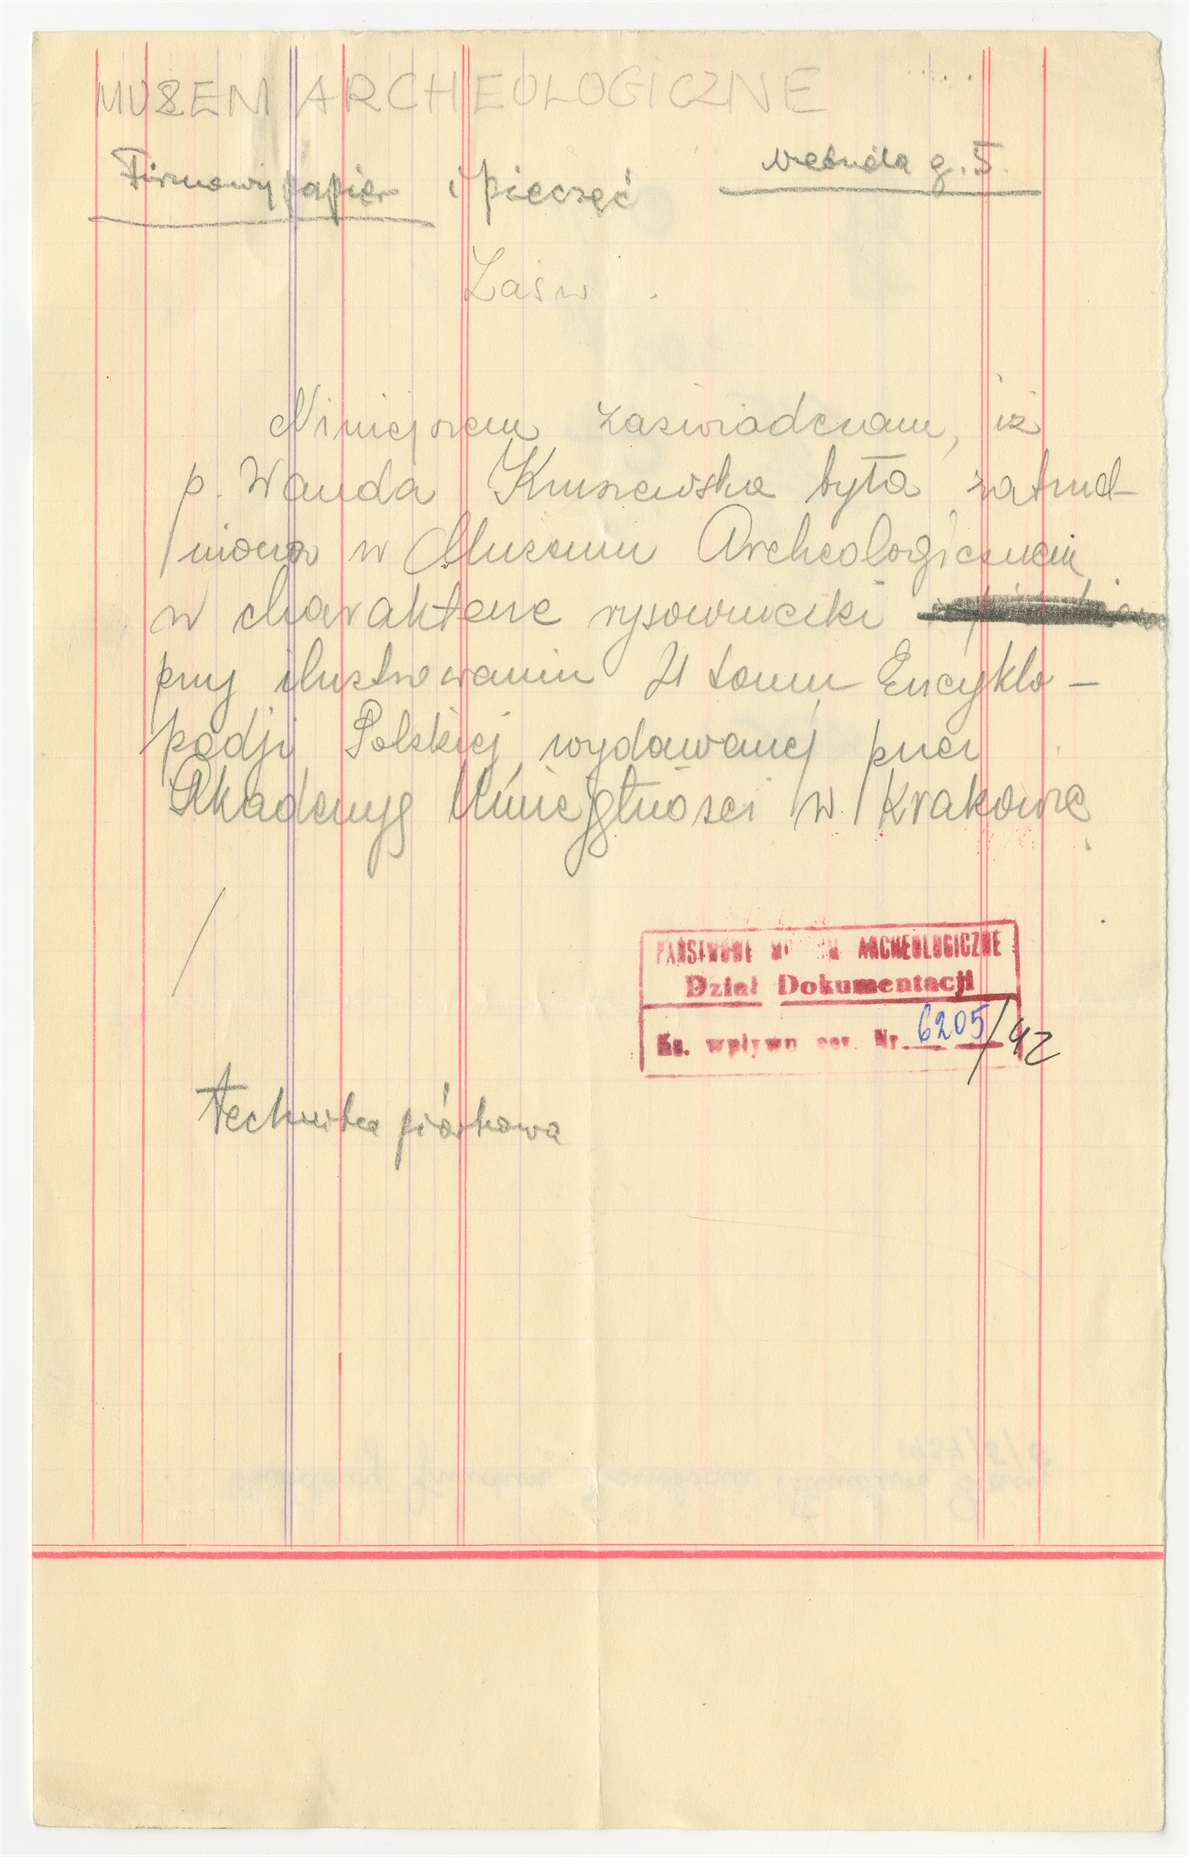 MUZEM ARCHEOLOGICZNE
Firmowy papier i pieczęć
g. 5.
Zaśw.
Niniejszem zaświadczam, iż
p. Wanda Kruszewska była zatrud-
niona w Muzeum Archeologicznem
w charakterze rysowniczki
przy ilustrowaniu 21 tomu Encyklo-
pedji Polskiej, wydawanej przez
Akademję Umiejętności w Krakowie
PAŃSTWOWE ARCHEOLOGICZNE
Dział Dokumentacji
Ks. wpływu Nr. 6205/42
Technika piórkowa